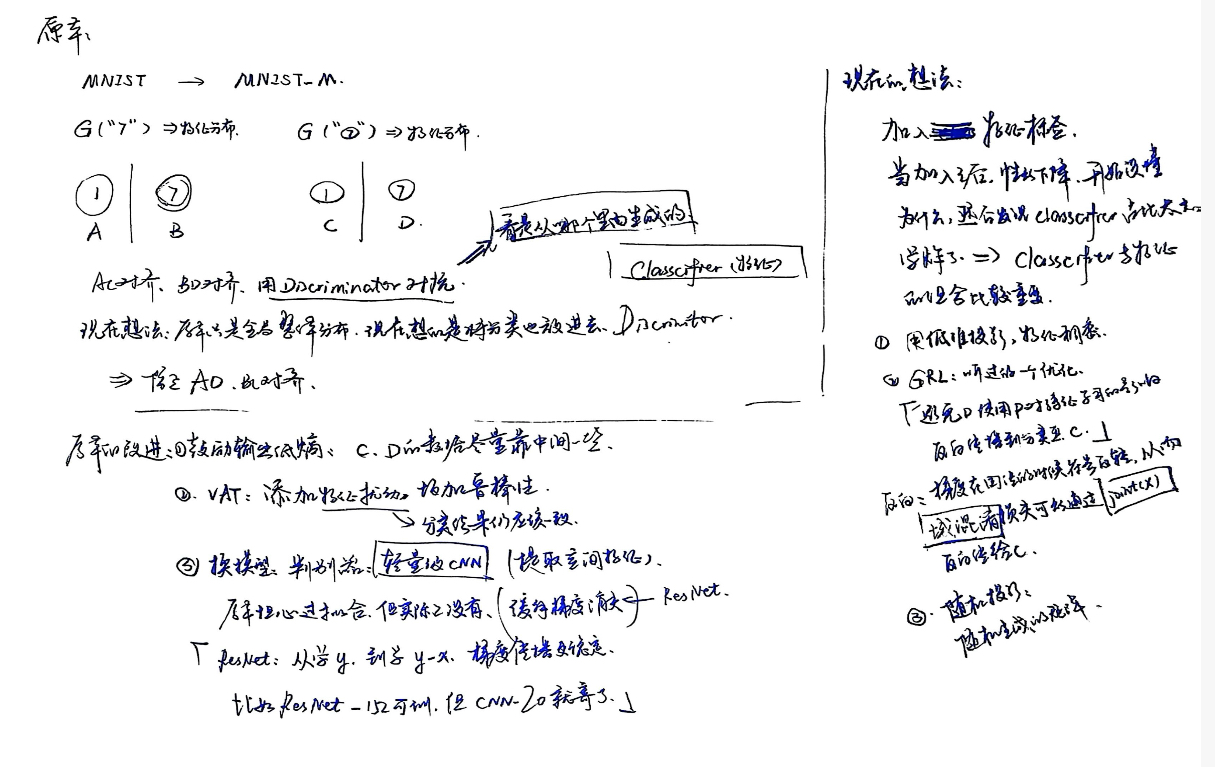 原本:
MNIST → MNIST-M.
G("7") ⇒ 特征分布. G("⑦") ⇒ 特征分布.
1 7 1 7
A B C D.
看是从哪个里面生成的
Classcifier (特征)
AC对齐、BD对齐、用Discriminator对抗.
现在想法: 原本只是全局整体分布. 现在想的是将分类也放进去. Discrimitor.
⇒ 修正 AD. BC对齐.
原本的改进: ①鼓励输出低熵: C. D的数据尽量靠中间一些.
②. VAT: 添加特征扰动. 增加鲁棒性.
↘ 分类结果仍应该一致.
③ 换模型: 判别器: 轻量级CNN (提取空间特征).
原本担心过拟合. 但实际上没有. (缓解梯度消失) ← ResNet.
「ResNet: 从学 y. 到学 y-x. 梯度传播更稳定.
比如 ResNet-152可训. 但 CNN-20 就寄了.」
现在的想法:
加入 特征标签.
当加入之后. 性能下降. 开始没懂
为什么, 然后发现 classcifier 占比太大
学炸了. ⇒ Classcifier 与特征
的组合比较重要.
① 用低维投影, 特征相乘.
② GRL: 听过的一个优化.
「避免D使用P对特征
反向传播到分类器 C.」
反向: 梯度在回传的时候符号反转, 从而
域混淆损失可以通过 joint(x)
反向传给C.
③. 随机投影:
随机生成的矩阵.